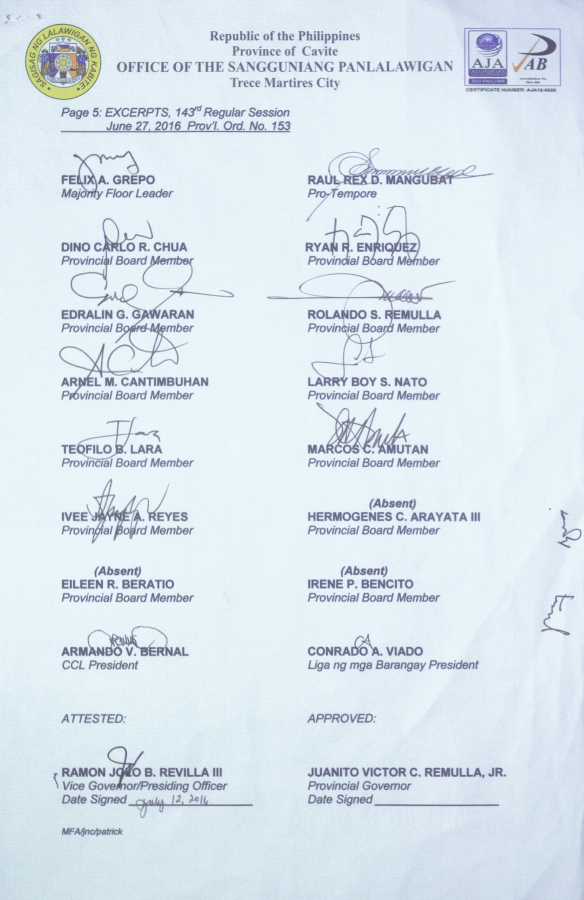 Republic of the Philippines
Province of Cavite
OFFICE OF THE SANGGUNIANG PANLALAWIGAN
Trece Martires City
SAGISAG NG LALAWIGAN NG KABITE
AJA
AB
CERTIFICATE NUMBER: AJA12-0020
Page 5: EXCERPTS, 143rd Regular Session
June 27, 2016 Prov'l. Ord. No. 153
FELIX A. GREPO
Majority Floor Leader
RAUL REX D. MANGUBAT
Pro-Tempore
DINO CARLO R. CHUA
Provincial Board Member
RYAN R. ENRIQUEZ
Provincial Board Member
EDRALIN G. GAWARAN
Provincial Board Member
ROLANDO S. REMULLA
Provincial Board Member
ARNEL M. CANTIMBUHAN
Provincial Board Member
LARRY BOY S. NATO
Provincial Board Member
TEOFILO B. LARA
Provincial Board Member
MARCOS C. AMUTAN
Provincial Board Member
IVEE JAYNE A. REYES
Provincial Board Member
(Absent)
HERMOGENES C. ARAYATA III
Provincial Board Member
(Absent)
EILEEN R. BERATIO
Provincial Board Member
(Absent)
IRENE P. BENCITO
Provincial Board Member
ARMANDO V. BERNAL
CCL President
CONRADO A. VIADO
Liga ng mga Barangay President
ATTESTED:
APPROVED:
RAMON JOLO B. REVILLA III
Vice Governor/Presiding Officer
Date Signed July 12, 2016
JUANITO VICTOR C. REMULLA, JR.
Provincial Governor
Date Signed
MFA/jnc/patrick